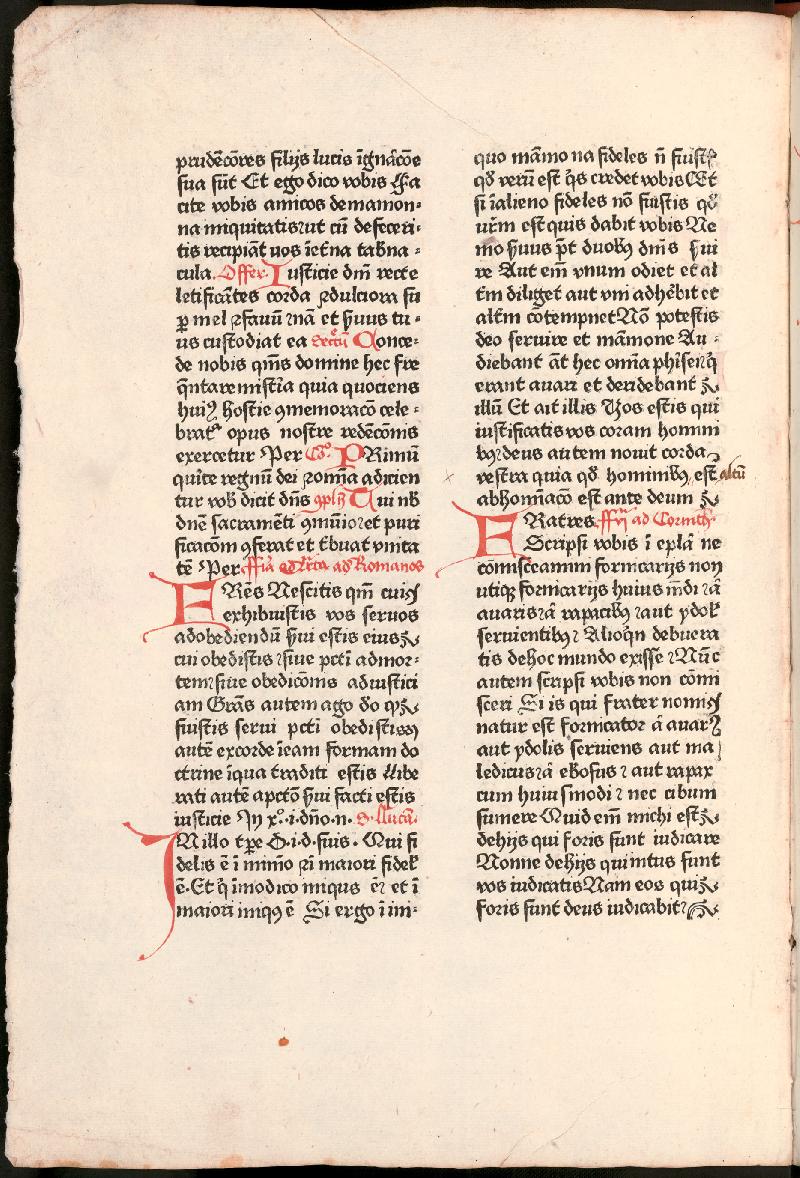 prudēcōres filijs lucis ī gnācōe
sua sūt Et ego dico vobis ffa
cite vobis amicos de mamon-
na iniquitatis: ut cū defeceri-
tis recipiāt uos ī et̄na tab̄na-
cula. Offer. Iusticie dn̄i recte
letificātes corda ⁊ dulciora su
ꝑ mel ⁊ fauū nā et s̄uus tu-
us custodiat ea Secretū Conce-
de nobis qm̄s domine hec fre
q̄ntare mist̄ia quia quociens
huiꝰ hostie ꝯmemoracō cele-
bratᷣ opus nostre redēcōnis
exercetur Per Cō. PRimū
quīte regnū dei ⁊ om̄ia adicien
tur vob̄ dicit dn̄s ꝯpl̄ꝫ Tui nb̄
dn̄e sacramēti ꝯmūio: et puri
ficacōm ꝯferat et t̄buat vnita
tē Per ffīa q̄rta ad Romanos
FRēs Nescitis qm̄ cui
exhibuistis vos seruos
ad obediendū s̄ui estis eius
cui obedistis: siue pctī ad mor-
tem: siue obedicōnis ad iustici
am Grās autem ago d̄o qꝫ
fuistis serui pctī obedistis
autē ex corde ī eam formam do
ctrine ī qua traditi estis Libe
rati autē a pctō s̄ui facti estis
iusticie In xº. i. dn̄o. n. S. Lucā.
IN illo tꝑe D. i. d. suis. Qui fi
delis ē ī mīmo ⁊ ī maiori fidel
ē. Et q̄ ī modico iniqus ē: et ī
maiori iniqꝰ ē Si ergo ī ini-
quo māmona fideles n̄ fuistꝭ
qd̄ verū est q̄s credet vobis Et
si ī alieno fideles nō fuistis qd̄
ur̄m est quis dabit vobis Ne
mo s̄uus p̄t duobꝫ dn̄is sui
re Aut em̄ vnum odiet et al
t̄m diliget aut vni adhēbit et
alt̄m cōtempnet Nō potestis
deo seruire et māmone Au-
diebant āt hec om̄ia phīsei q̄
erant auari et deridebant
illū Et ait illis Vos estis qui
iustificatis vos coram homini
bꝫ: deus autem nouit corda
vestra quia qd̄ hominibꝫ est altū
abhomīacō est ante deum
FRatres. ffᷓi ad Corinth.
Scripsi vobis ī epl̄a ne
cōmisceamini fornicarijs non
utiqꝫ fornicarijs huius mūdi: ā
auaris: ā rapacibꝫ: aut ydol
seruientibꝫ: Alioq̄n debuera
tis de hoc mundo exisse: Nūc
autem scripsi vobis non cōmi
sceri Si is qui frater nomi
natur est fornicator ā auarꝰ
aut ydolis seruiens aut ma
ledicus: ā ebosus: aut rapax
cum huiusmodi: nec cibum
sumere Quid em̄ michi est
de hijs qui foris sunt iudicare
Nonne de hijs qui intus sunt
vos iudicatis Nam eos qui
foris sunt deus iudicabit: